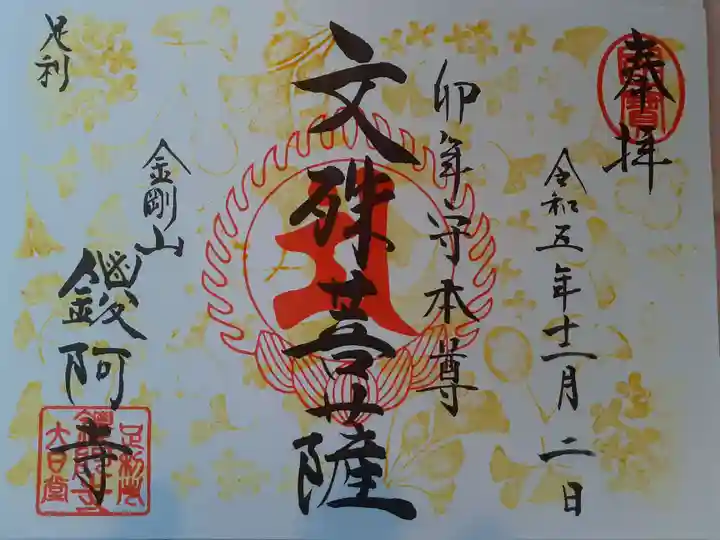 奉拝
令和五年十一月二日
卯年守本尊
文殊菩薩
足利
金剛山
鑁阿寺
足利荘
鑁阿寺
大日堂